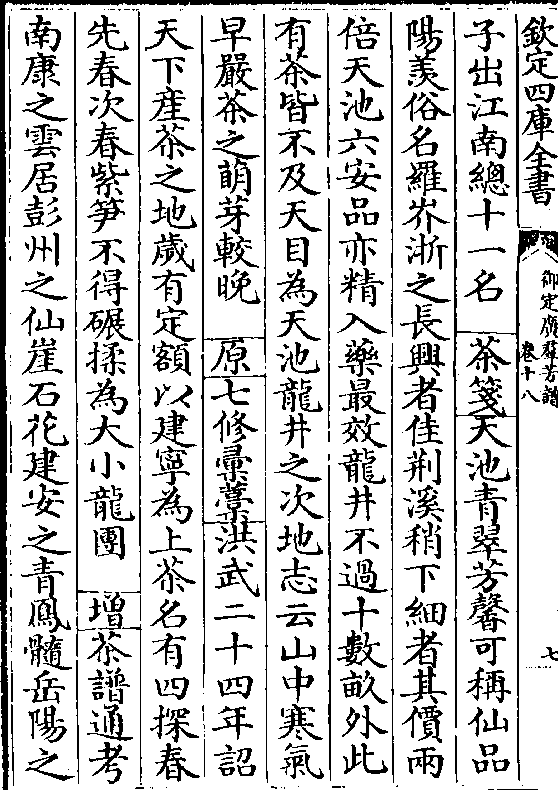 欽定四庫全書
御定廣羣芳譜
卷十八
七
子出江南總十一名 茶箋天池青翠芳馨可稱仙品
陽羨俗名羅岕浙之長興者佳荆溪稍下細者其價兩
倍天池六安品亦精入藥最效龍井不過十數畝外此
有茶皆不及天目為天池龍井之次地志云山中寒氣
早嚴茶之萌芽較晚 原七修彚藁洪武二十四年詔
天下産茶之地歲有定額以建寧為上茶名有四探春
先春次春紫笋不得碾揉為大小龍團 增茶譜通考
南康之雲居彭州之仙崖石花建安之青鳳髓岳陽之